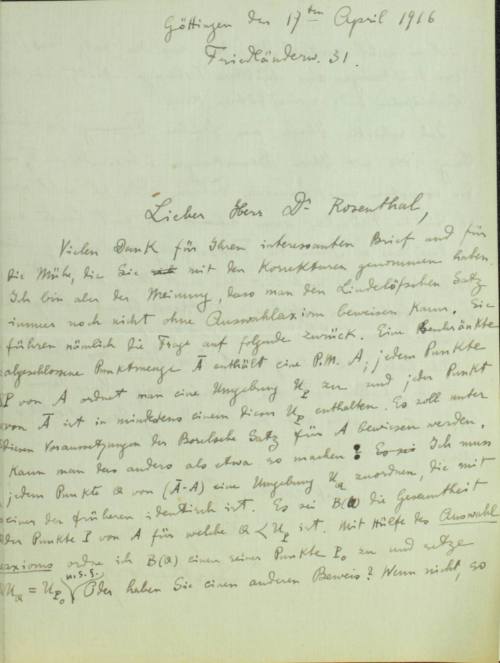 Göttingen den 17ten April 1916
Friedländerw. 31.
Lieber Herr Dr Rosenthal,
Vielen Dank für Ihren interessanten Brief und für
die Mühe, die Sie mit den Korrekturen genommen haben.
Ich bin aber der Meinung, dass man den Lindelöfschen Satz
immer noch nicht ohne Auswahlaxiom beweisen kann. Sie
führen nämlich die Frage auf folgende zurück. Eine beschränkte
abgeschlossene Punktmenge Ā enthält eine P.M. A; jedem Punkte
P von A ordnet man eine Umgebung U_P zu und jeder Punkt
von Ā ist in mindestens einem dieser U_P enthalten. Es soll unter
diesen Voraussetzungen der Borelsche Satz für A bewiesen werden.
Kann man das anders als etwa so machen? Ich muss
jedem Punkte Q von (Ā-A) eine Umgebung U_Q zuordnen, die mit
einer der früheren identisch ist. Es sei B(Q) die Gesamtheit
der Punkte P von A für welche Q < U_P ist. Mit Hülfe des Auswahl
axioms ordne ich B(Q) einen seiner Punkte P_0 zu und setze
U_Q = U_P_0 u.s.f. Oder haben Sie einen anderen Beweis? Wenn nicht, so